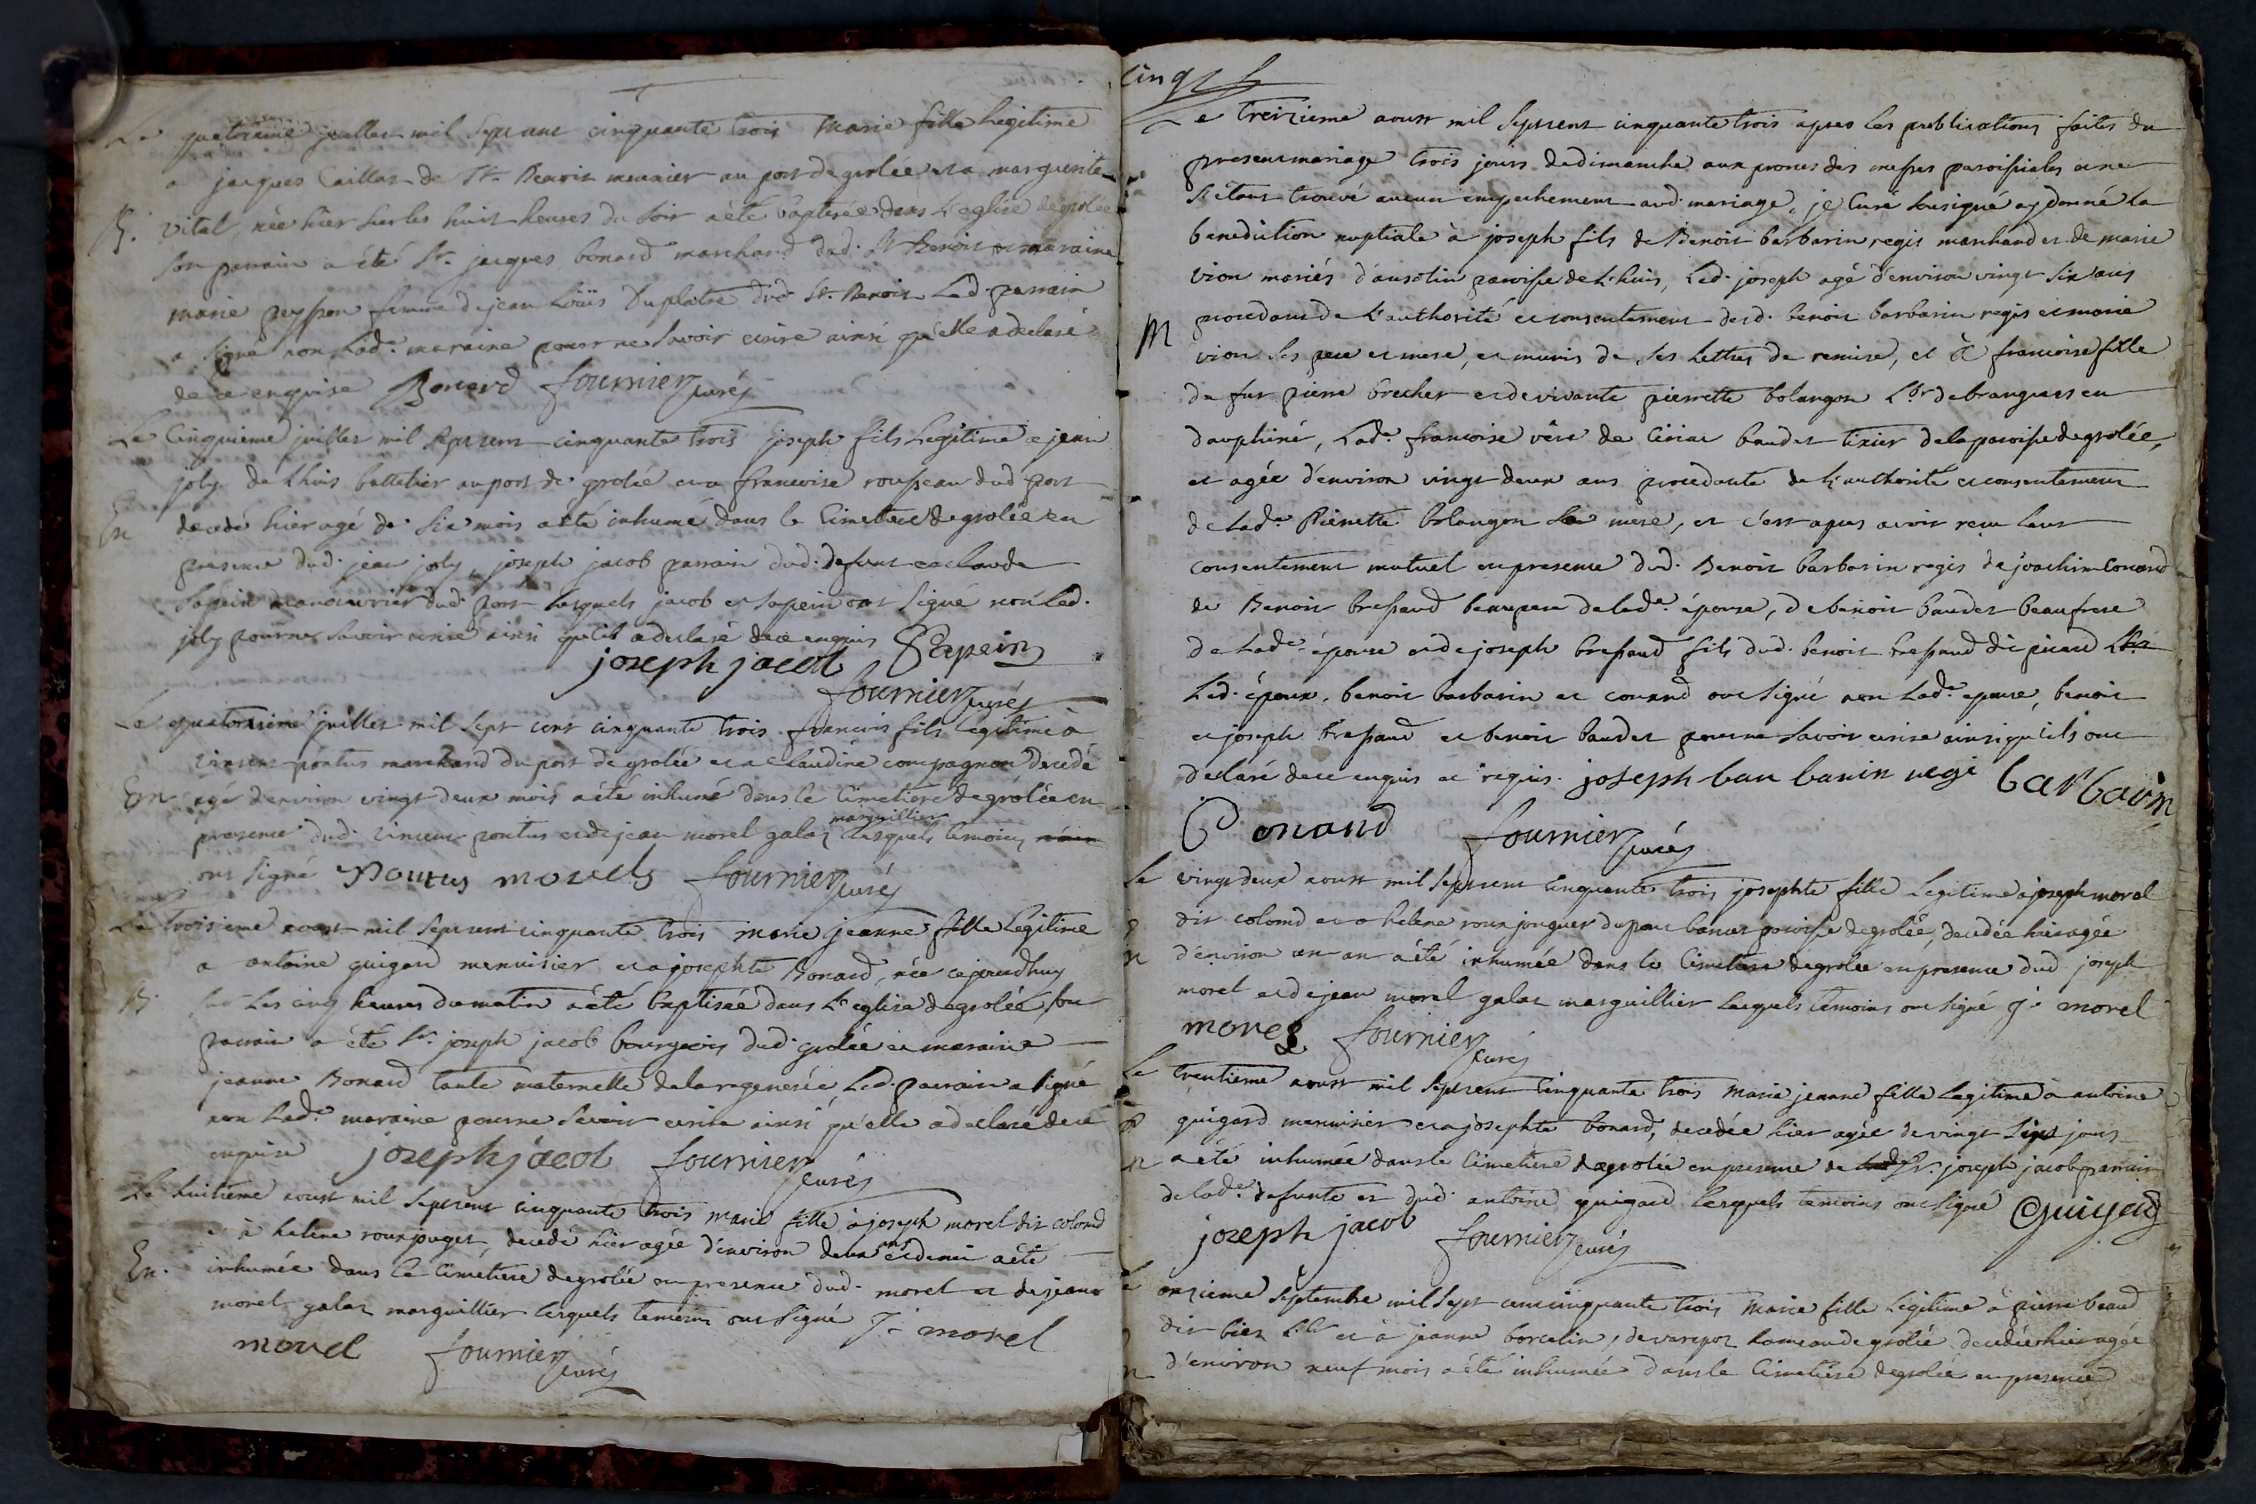 Le quatorzieme juillet mil sept cent cinquante trois marie fille legitime
a jacques Caillat de St. Benoit meunier au port de grolée et a marguerite
B. vital, née hier sur les huit heures du soir a été baptisée dans l'eglise de grolée
son parrain a été Sr. jacques bonard marchand dud. St Benoit et maraine
marie peysson femme de jean Loüis Duplatre dud. St. Benoit Led. parrain
a signé non Lad.e maraine pour ne savoir ecrire ainsi qu'elle a declaré
de ce enquise Bonard fournier curé
Le Cinquieme juillet mil sept cent cinquante trois joseph fils Legitime a jean
joly de Lhuis battelier au port de grolée et a francoise rousseau dud port
En decedé hier agé de six mois a été inhumé dans le Cimetiere de grolée en
presence dud. jean joly, joseph jacob parrain dud. defunt et claude
Sapein manouvrier dud. port Lesquels jacob et Sapein ont signé non Led.
joly pour ne savoir ecrire ainsi qu'il a declaré de ce enquis Sapein
joseph jacob
fournier curé
Le quatorzieme juillet mil sept cent cinquante trois francois fils legitime a
vincent pontus marchand du port de grolée et a Claudine compagnon decedé
En agé d'environ vingt deux mois a été inhumé dans le Cimetiere de grolée en
marguillier
presence dud. vincent pontus et de jean morel galaz Lesquels temoins
ont signé Pontus morel fournier curé
Le troisieme aoust mil sept cent cinquante trois marie jeanne fille Legitime
a antoine guigard menuisier et a josephte Bonard, née ce jourdhuy
B. sur Les cinq heures du matin a été baptisée dans L'eglise de grolée, son
parrain a été Sr. joseph jacob bourgeois dud. grolée et maraine
jeanne Bonard tante maternelle de la regenerée Led. parrain a signé
non Lad.e maraine pour ne savoir ecrire ainsi qu'elle a declaré de ce
enquise joseph jacob fournier curé
Le huitieme aoust mil sept cent cinquante trois marie fille a joseph morel dit colomd
et à helene rouxjouguet, decedé hier agée d'environ deux ans et demi a été
En. inhumée dans le Cimetiere de grolée en presence dud. morel et de jean
morel galaz marguillier lesquels temoins ont signé J. morel
morel fournier curé
cinq
Le treizieme aoust mil sept cent cinquante trois apres les publications faites du
present mariage trois jours de dimanche aux prones des messes paroissiales et ne
s'etant trouvé aucun empechement aud. mariage, je Curé sousigné ay donné la
benediction nuptiale à joseph fils de Benoit barbarin regis marchand et de marie
vion mariés d'ansolin paroisse de Lhuis, Led. joseph agé d'environ vingt six ans
M procedant de L'authorité et consentement desd. benoit barbarin regis et marie
vion ses pere et mere, et munis de ses Lettres de remise, et à francoise fille
de fut pierre brecher et de vivante pierrette bolangon L.br de brangues en
dauphiné, Lad.e francoise vêve de Ciriac baudet tixier de la paroisse de grolée,
et agée d'environ vingt deux ans procedante de L'authorité et consentement
de Lad.e Pierrette bolangon sa mere, et c'est apres avoir reçu Leur
consentement mutuel en presence dud. Benoit barbarin regis de joachim Conand
de Benoit bressand beaupere de Lad.e épouse, de benoit baudet beaufrere
de Lad.e épouse et de joseph bressand fils dud. benoit bressand dit picard
Led. époux, benoit barbarin et conand ont signé non Lad.e epouse, benoit
et joseph bressand et benoit baudet pour ne savoir ecrire ainsi qu'ils ont
declaré de ce enquis et requis. joseph bar barin regi barbarin
Conand fournier curé
Le vingt deux aoust mil sept cent cinquante trois josephte fille Legitime a joseph morel
dit colomd et a helene rouxjouguet paroisse de grolée, decedée hier agée
d'environ un an a été inhumée dans le Cimetiere de grolée en presence dud joseph
morel et de jean morel galaz marguillier Lesquels temoins ont signé J. morel
morel fournier curé
Le trentieme aoust mil sept cent cinquante trois marie jeanne fille Legitime a antoine
guigard menuisier et a josephte bonard, decedée hier agée de vingt sept jours
a été inhumée dans le Cimetiere de grolée en presence de Sr. joseph jacob parrain
de Lad.e defunte et dud. antoine guigard Lesquels temoins ont signé Guigard
joseph jacob fournier curé
Le onzieme septembre mil sept cent cinquante trois marie fille Legitime à pierre beaud
dit biez L.br et à jeanne borcelin, de varepoz hameau de grolée decedée hier agée
d'environ neuf mois a été inhumée dans le Cimetiere de grolée en presence